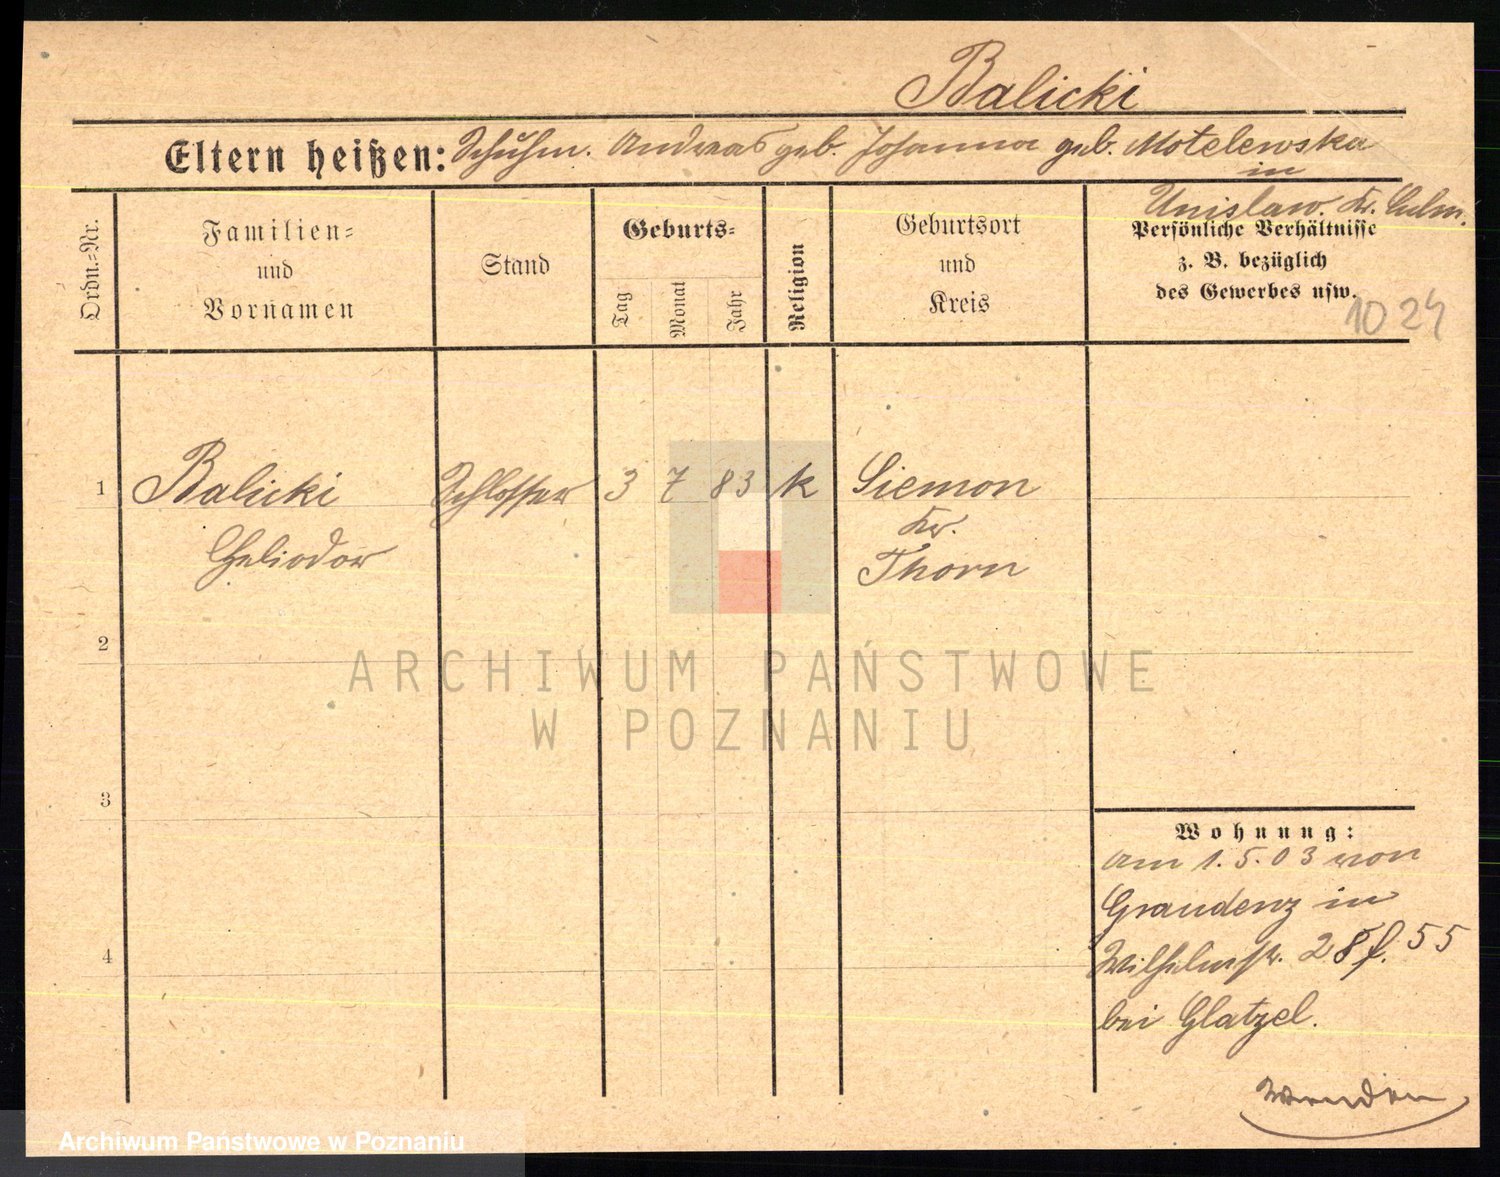 Balicki
Eltern heißen: Schuhm. Andreas geb. Johanna geb. Motelewska
in
Unislaw. Kr. Culm.
Ordn.=Nr.
Familien=
und
Vornamen
Stand
Geburts=
Tag
Monat
Jahr
Religion
Geburtsort
und
Kreis
Persönliche Verhältnisse
z. B. bezüglich
des Gewerbes usw.
1024
1 Balicki Schlosser 3 7 83 k Siemon
Heliodor
Kr.
Thorn
2
3
4
ARCHIWUM PAŃSTWOWE
W POZNANIU
Wohnung:
am 1. 5. 03 von
Graudenz in
Wilhelmstr. 28 f. 55
bei Glatzel.
Wenden
Archiwum Państwowe w Poznaniu